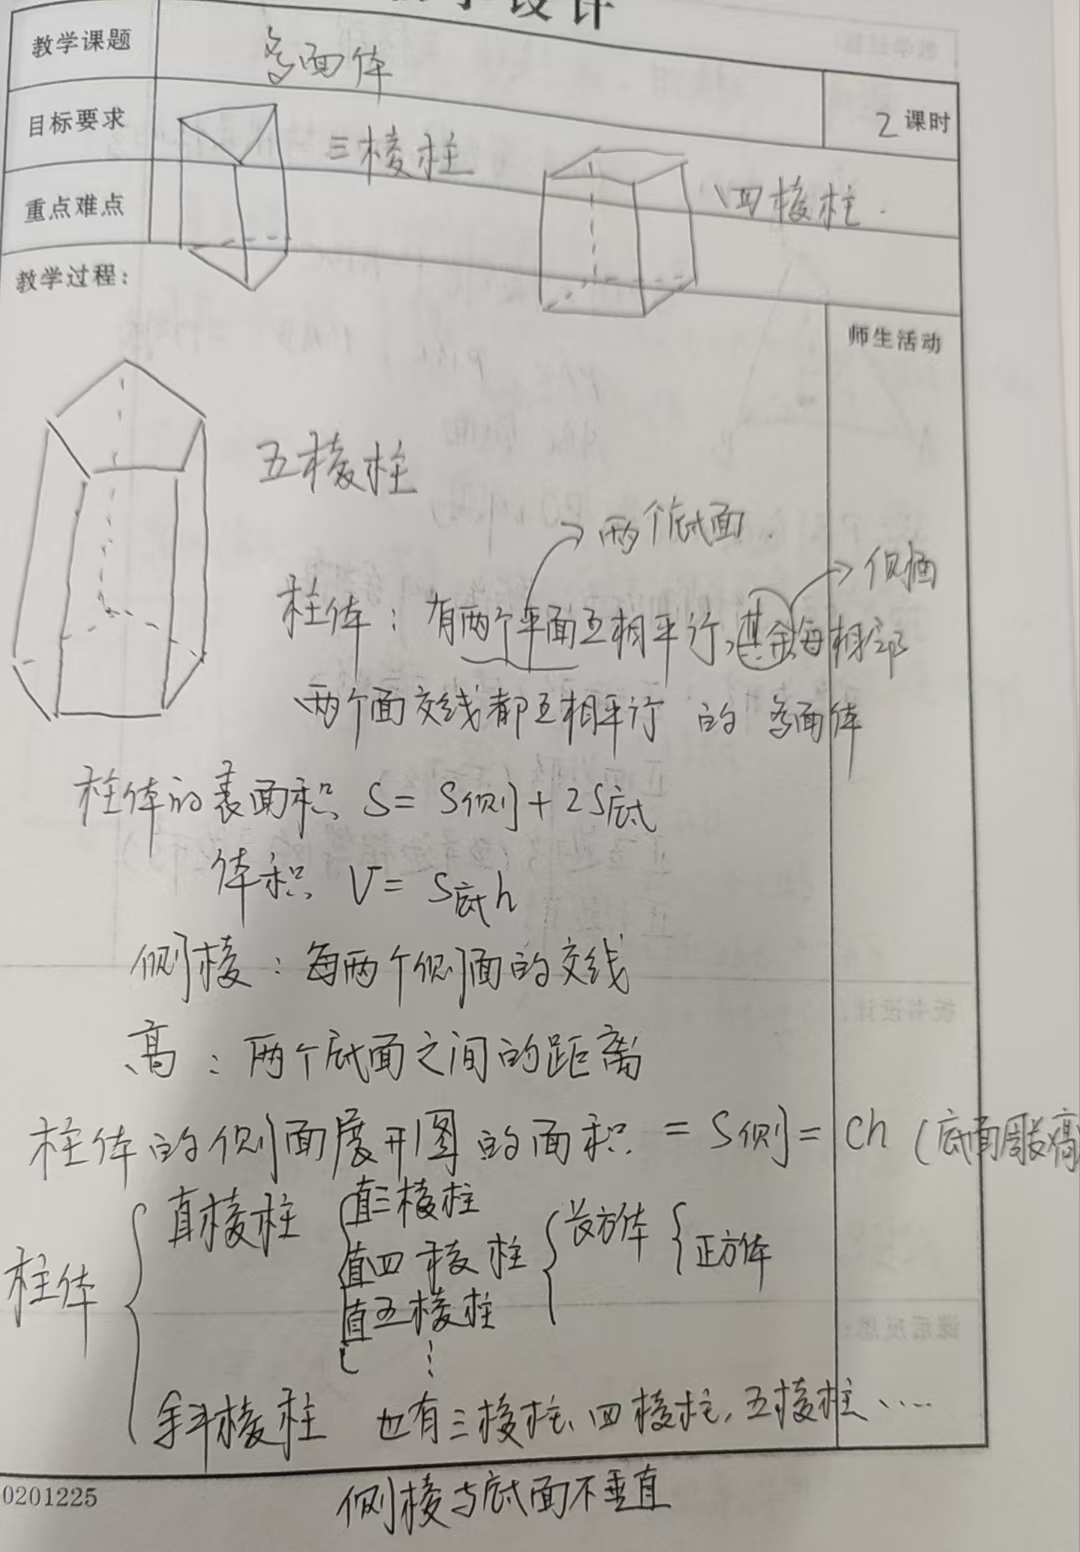 设计
教学课题 多面体
目标要求 三棱柱 2课时
重点难点 四棱柱.
教学过程:
师生活动
五棱柱
→两个底面.
→侧面
柱体:有两个平面互相平行,其余每相邻
两个面交线都互相平行的多面体
柱体的表面积 S=S侧+2S底
体积 V=S底h
侧棱:每两个侧面的交线
高:两个底面之间的距离
柱体的侧面展开图的面积=S侧=ch(底面周长高
柱体
直棱柱 直三棱柱
直四棱柱 长方体 正方体
直五棱柱
⋮
斜棱柱 也有三棱柱、四棱柱,五棱柱、....
侧棱与底面不垂直
0201225